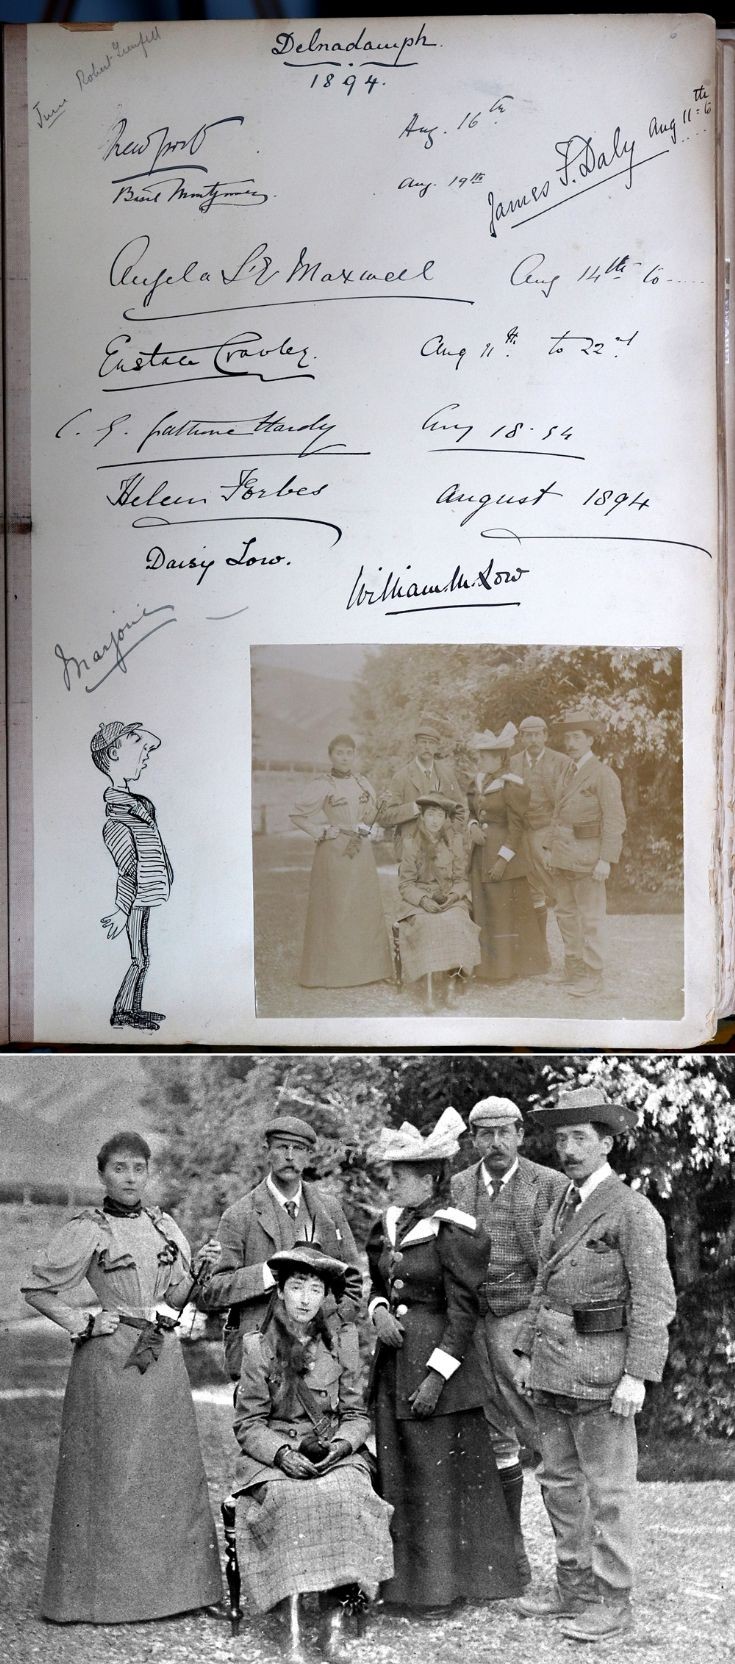 June Robert Grenfell
Delnadamph.
1894.
Newport Aug. 16th
Basil Montgomery. Aug. 19th
James F. Daly Aug 11th to.....
Angela St. E Maxwell Aug 14th to.....
Eustace Crawley. Aug 11th. to 22nd
C. G. Gathorne Hardy Aug 18-94
Helen Forbes August 1894
Daisy Low.
William M. Low
Marjorie